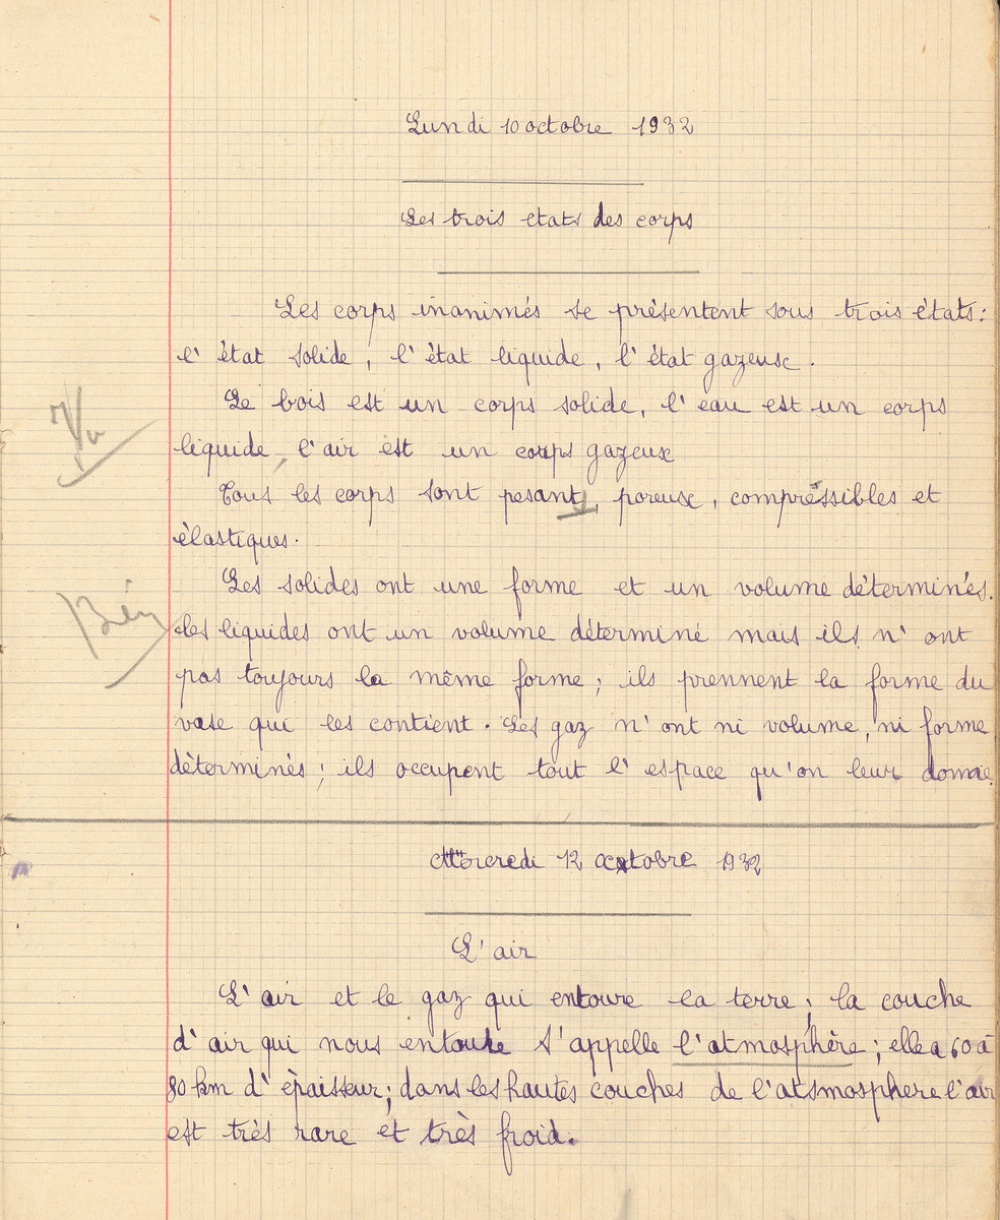 Lundi 10 octobre 1932
Les trois etats des corps
Les corps inanimés se présentent sous trois états :
l'état solide, l'état liquide, l'état gazeux.
Le bois est un corps solide, l'eau est un corps
Vu
liquide, l'air est un corps gazeux
Tous les corps sont pesants, poreux, compréssibles et
élastiques.
Les solides ont une forme et un volume déterminés.
Bien
Les liquides ont un volume déterminé mais ils n'ont
pas toujours la même forme ; ils prennent la forme du
vase qui les contient. Les gaz n'ont ni volume, ni forme
déterminés ; ils occupent tout l'espace qu'on leur donne.
Mercredi 12 octobre 1932
L'air
L'air et le gaz qui entoure la terre ; la couche
d'air qui nous entoure s'appelle l'atmosphère ; elle a 60 à
80 km d'épaisseur ; dans les hautes couches de l'atsmosphere l'air
est très rare et très froid.